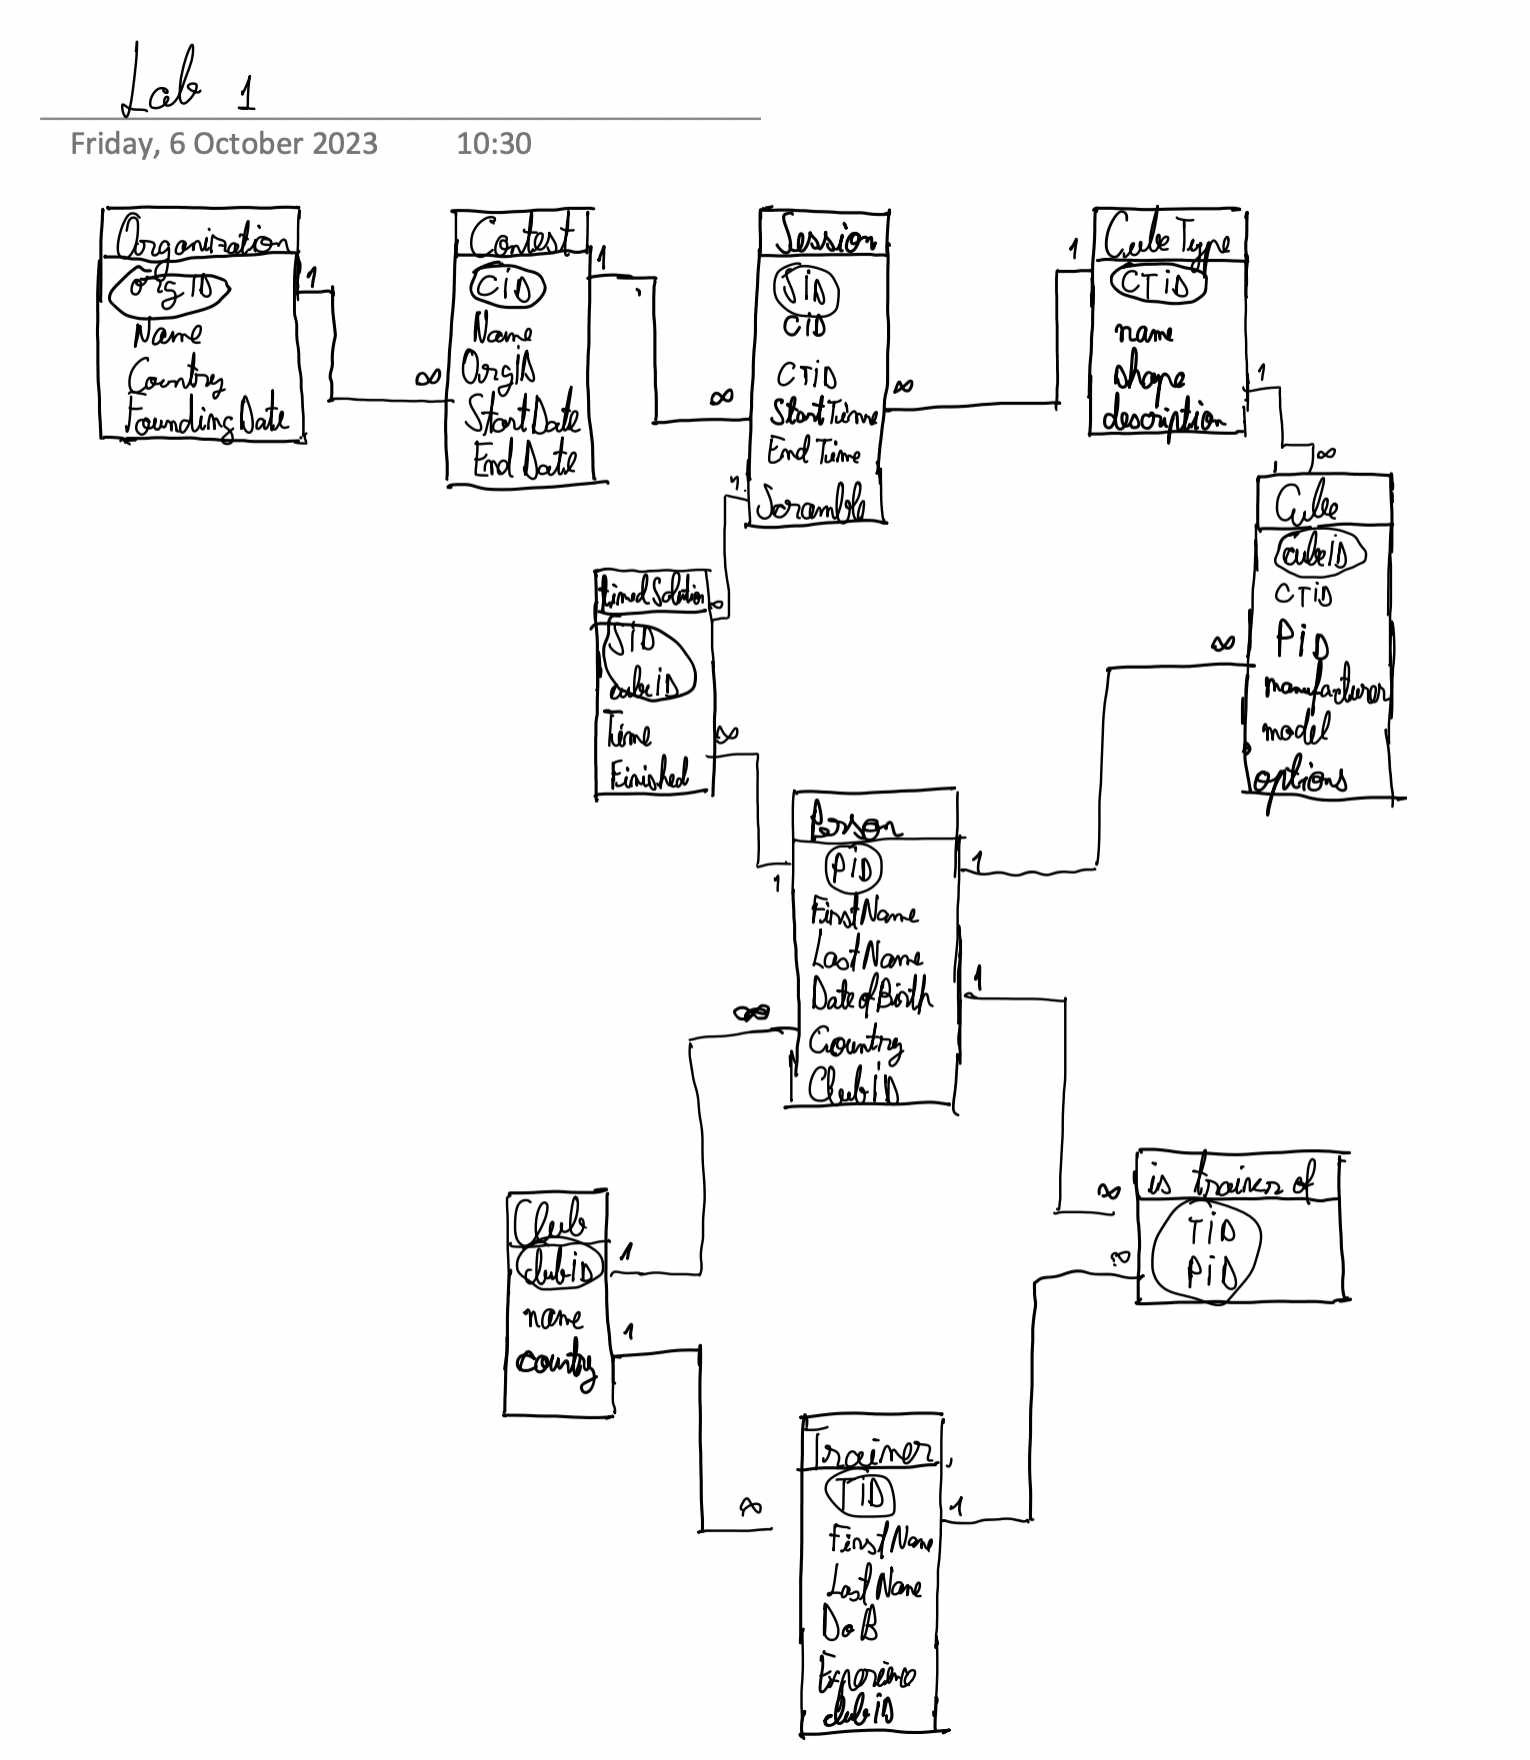 Lab 1
Friday, 6 October 2023 10:30
Organization
OrgID
Name
Country
Founding Date
1
∞
Contest
CiD
Name
OrgID
Start Date
End Date
1
∞
Session
SiD
CiD
CTiD
Start Time
End Time
Scramble
∞
1
1
Cube Type
CTiD
name
shape
description
1
∞
Cube
cubeiD
CTiD
PiD
manufacturer
model
options
∞
timed Solution
SiD
cubeiD
Time
Finished
∞
∞
1
Person
PiD
First Name
Last Name
Date of Birth
Country
Club iD
1
1
∞
Club
clubiD
name
country
1
1
∞
is trainer of
TiD
PiD
∞
∞
Trainer
TiD
First Name
Last Name
DoB
Experience
clubiD
1
∞